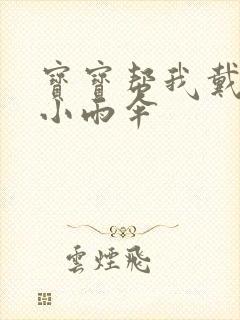 寶寶帮我戴
小雨伞
雲煙飛